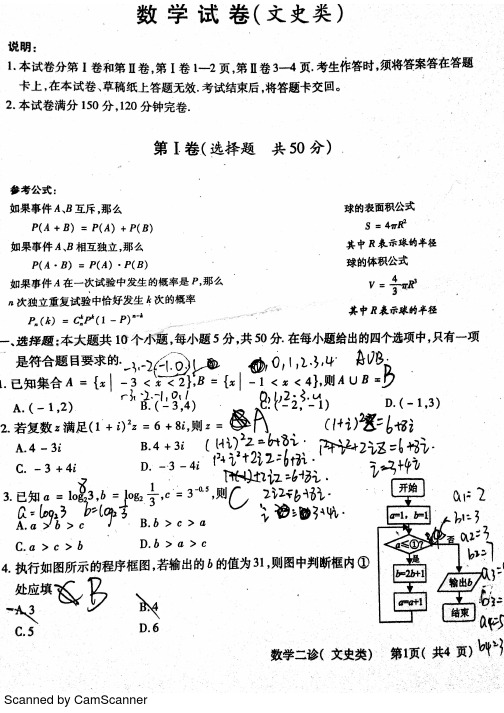 数学试卷(文史类)
说明:
1.本试卷分第Ⅰ卷和第Ⅱ卷,第Ⅰ卷1—2页,第Ⅱ卷3—4页.考生作答时,须将答案答在答题
卡上,在本试卷、草稿纸上答题无效.考试结束后,将答题卡交回。
2.本试卷满分150分,120分钟完卷.
第Ⅰ卷(选择题 共50分)
参考公式:
如果事件A、B互斥,那么 球的表面积公式
P(A + B) = P(A) + P(B) S = 4πR²
如果事件A、B相互独立,那么 其中R表示球的半径
P(A · B) = P(A) · P(B) 球的体积公式
如果事件A在一次试验中发生的概率是P,那么 V = 4/3 πR³
n次独立重复试验中恰好发生k次的概率 其中R表示球的半径
Pₙ(k) = CₙᵏPᵏ(1 - P)ⁿ⁻ᵏ
一、选择题:本大题共10个小题,每小题5分,共50分.在每小题给出的四个选项中,只有一项
是符合题目要求的. -3,-2,-1,0,1 0,1,2,3,4 A∪B
1.已知集合A = {x | -3 < x < 2},B = {x | -1 < x < 4},则A∪B = B
-3,-2,-1,0,1 0,1,2,3,4
A.(-1,2) B.(-3,4) C.(-2,-1) D.(-1,3)
2.若复数z满足(1 + i)²z = 6 + 8i,则z = A (1+i)²z=6+8i
A.4 - 3i B.4 + 3i (1+i)²z=6+8i 1²+i²+2iz=6+8i
C. -3 + 4i D. -3 - 4i 1²+i²+2iz=6+8i i=3+4i
(1+(-1))+2iz=6+8i
3.已知a = log₈3,b = log₂ 1/3,c = 3^(-0.5),则 C 2iz=6+8i
a=log₈3 b=log₂1/3
A.a > b > c B.b > c > a
C.a > c > b D.b > a > c
4.执行如图所示的程序框图,若输出的b的值为31,则图中判断框内①
处应填 B
A.3 B.4
C.5 D.6
开始
a=1, b=1
a≤①?
否
是
b=2b+1
a=a+1
输出b
结束
a₁=2
b₁=3
a₂=3
b₂=7
数学二诊(文史类) 第1页(共4页)
Scanned by CamScanner